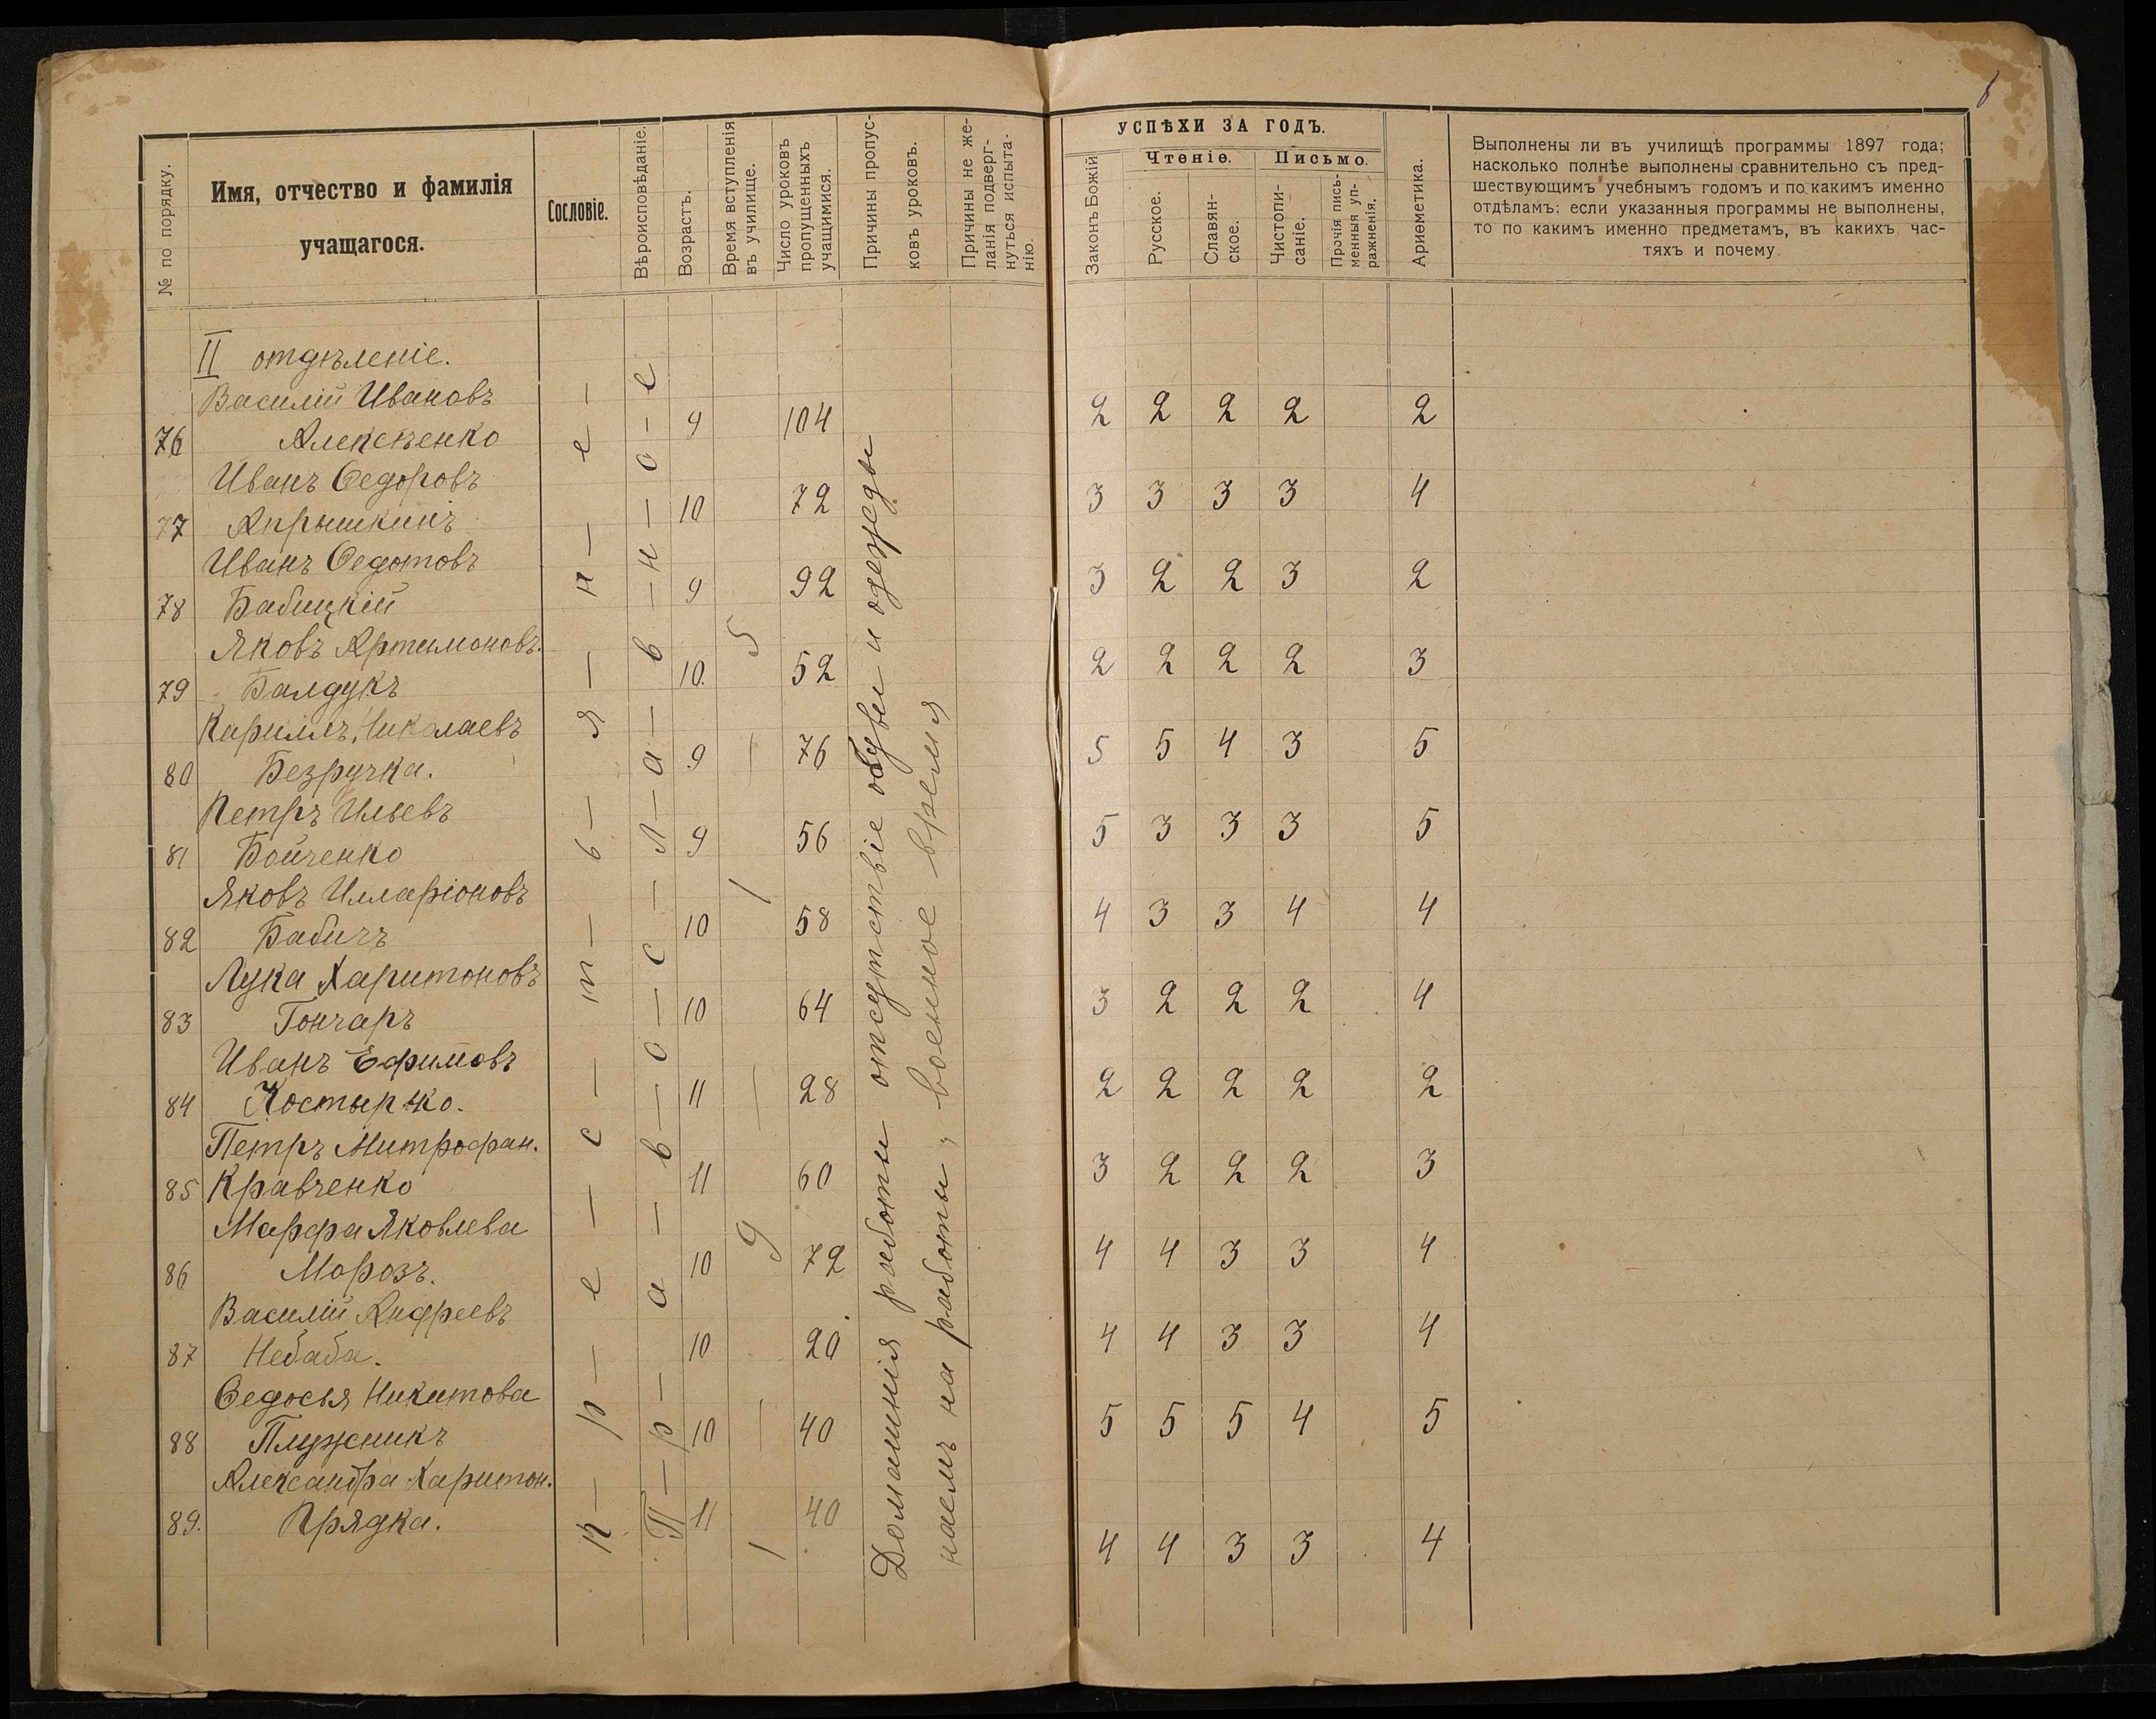 № по порядку.
Имя, отчество и фамилія
учащагося.
Сословіе.
Вѣроисповѣданіе.
Возрастъ.
Время вступленія
въ училище.
Число уроковъ
пропущенныхъ
учащимися.
Причины пропус-
ковъ уроковъ.
Причины не же-
ланія подверг-
нуться испыта-
нію.
УСПѢХИ ЗА ГОДЪ.
Законъ Божій
Чтеніе.
Русское.
Славян-
ское.
Письмо.
Чистопи-
саніе.
Прочія пись-
менныя уп-
ражненія.
Ариѳметика.
Выполнены ли въ училищѣ программы 1897 года;
насколько полнѣе выполнены сравнительно съ пред-
шествующимъ учебнымъ годомъ и по какимъ именно
отдѣламъ: если указанныя программы не выполнены,
то по какимъ именно предметамъ, въ какихъ час-
тяхъ и почему.
II отдѣленіе.
Василій Ивановъ
76 Алексѣенко 9 104 2 2 2 2 2
Иванъ Ѳедоровъ
77 Апрышкинъ 10 72 3 3 3 3 4
Иванъ Ѳедотовъ
78 Бабицкій 9 92 3 2 2 3 2
Яковъ Артимоновъ.
79 Балдукъ 10. 52 2 2 2 2 3
Кирилъ Николаевъ
80 Безручка. 9 76 5 5 4 3 5
Петръ Ильевъ
81 Бойченко 9 56 5 3 3 3 5
Яковъ Илларіоновъ
82 Бабичъ 10 58 4 3 3 4 4
Лука Харитоновъ
83 Гончаръ 10 64 3 2 2 2 4
Иванъ Ефимовъ
84 Костырко. 11 28 2 2 2 2 2
Петръ Митрофан.
85 Кравченко 11 60 3 2 2 2 3
Марфа Яковлева
86 Морозъ. 10 72 4 4 3 3 4
Василій Андреевъ
87 Небаба. 10 20 4 4 3 3 4
Ѳедосья Никитова
88 Плужникъ 10 40 5 5 5 4 5
Александра Харитон.
89. Прядка. 11 40 4 4 3 3 4
К–р–е–с–т–ь–я–н–е–
П–р–а–в–о–с–л–а–в–н–о–е
1 9 1 5
Домашнія работы отсутствіе обуви и одежды
наемъ на работы, военное время